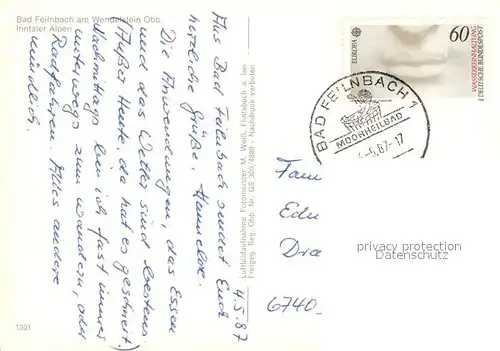 Bad Feilnbach am Wendelstein Obb.
Inntaler Alpen
4.5.87
Aus Bad Feilnbach sendet Euch
herzliche Grüße, Hannelore.
Die Anwendungen, das Essen
und das Wetter sind bestens.
(Außer Heute, da hat es geschneit.)
Nachmittags bin ich fast immer
unterwegs zum wandern, oder
Radfahren. Alles andere
mündlich.
1301
Luftbildaufnahme Fotomeister M. Weiß, Flintsbach a. Inn
Freigeg. Reg. Obb. Nr. GS 300/ - Nachdruck verboten
EUROPA
60
WASSERREINHALTUNG
DEUTSCHE BUNDESPOST
BAD FEILNBACH 1
MOORHEILBAD
-5.87-17
Fam
Edu
Dra
6740
privacy protection
Datenschutz